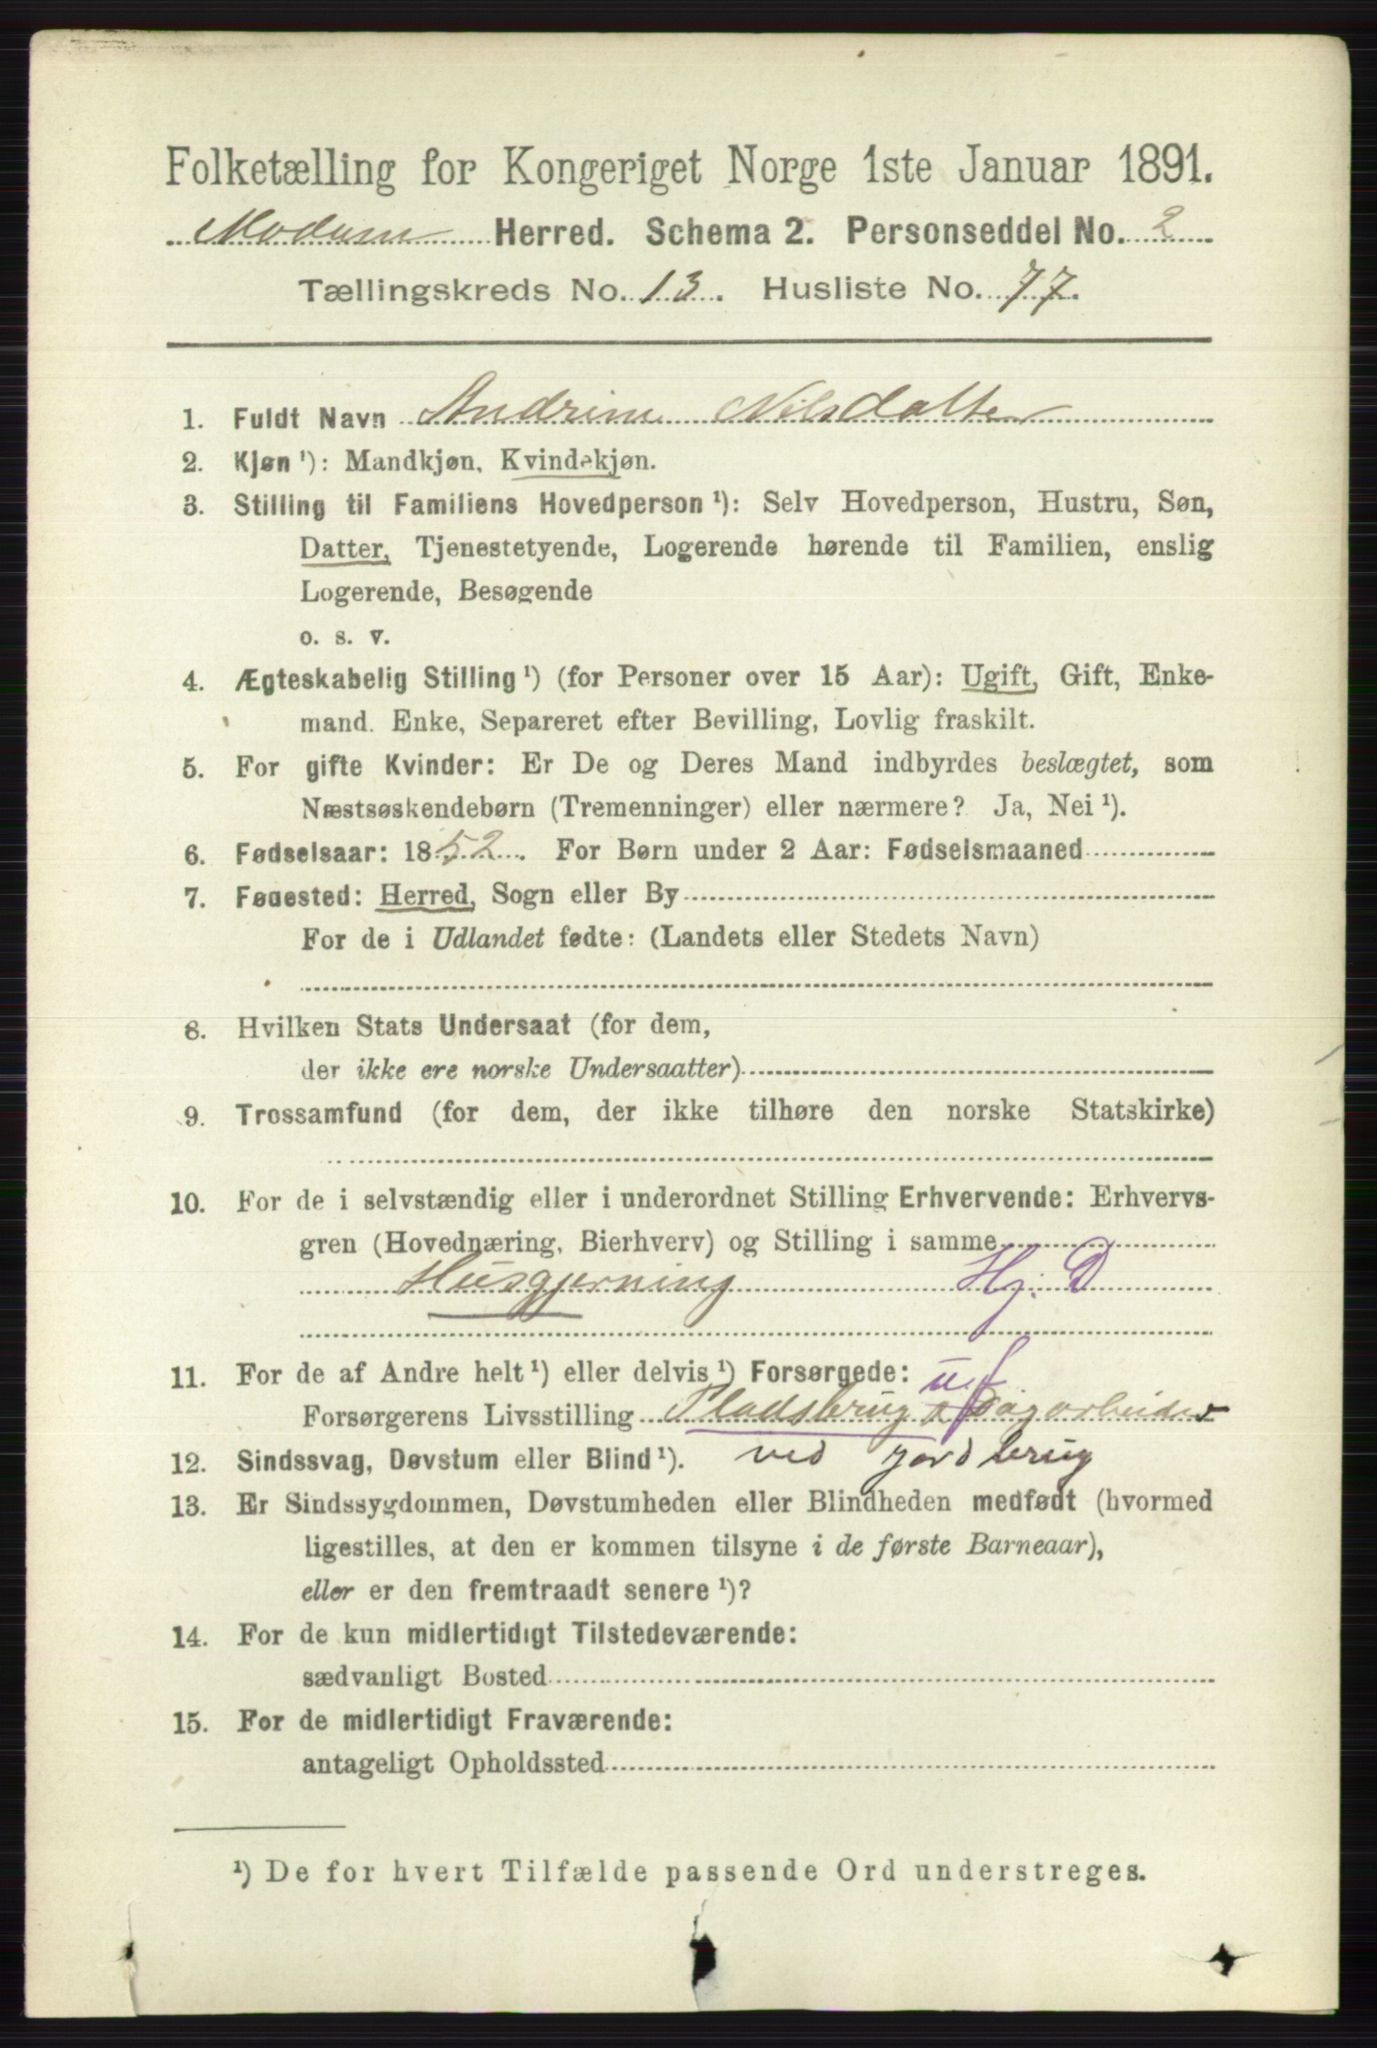 Folketælling for Kongeriget Norge 1ste Januar 1891.
Modum Herred. Schema 2. Personseddel No. 2
Tællingskreds No. 13. Husliste No. 77.
1. Fuldt Navn Andrine Nilsdatter
2. Kjøn ¹): Mandkjøn, Kvindekjøn.
3. Stilling til Familiens Hovedperson ¹): Selv Hovedperson, Hustru, Søn,
Datter, Tjenestetyende, Logerende hørende til Familien, enslig
Logerende, Besøgende
o. s. v.
4. Ægteskabelig Stilling ¹) (for Personer over 15 Aar): Ugift, Gift, Enke-
mand. Enke, Separeret efter Bevilling, Lovlig fraskilt.
5. For gifte Kvinder: Er De og Deres Mand indbyrdes beslægtet, som
Næstsøskendebørn (Tremenninger) eller nærmere? Ja, Nei ¹).
6. Fødselsaar: 1852. For Børn under 2 Aar: Fødselsmaaned
7. Fødested: Herred, Sogn eller By
For de i Udlandet fødte: (Landets eller Stedets Navn)
8. Hvilken Stats Undersaat (for dem,
der ikke ere norske Undersaatter)
9. Trossamfund (for dem, der ikke tilhøre den norske Statskirke)
10. For de i selvstændig eller i underordnet Stilling Erhvervende: Erhvervs-
gren (Hovednæring, Bierhverv) og Stilling i samme
Husgjerning Hj. D
11. For de af Andre helt ¹) eller delvis ¹) Forsørgede: u.f.
Forsørgerens Livsstilling Pladsbrug Dagarbeider
12. Sindssvag, Døvstum eller Blind ¹). ved jordbrug
13. Er Sindssygdommen, Døvstumheden eller Blindheden medfødt (hvormed
ligestilles, at den er kommen tilsyne i de første Barneaar),
eller er den fremtraadt senere ¹)?
14. For de kun midlertidigt Tilstedeværende:
sædvanligt Bosted
15. For de midlertidigt Fraværende:
antageligt Opholdssted
¹) De for hvert Tilfælde passende Ord understreges.